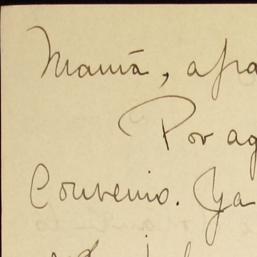 Mamá, afra
Por ag
Convenio. Ya